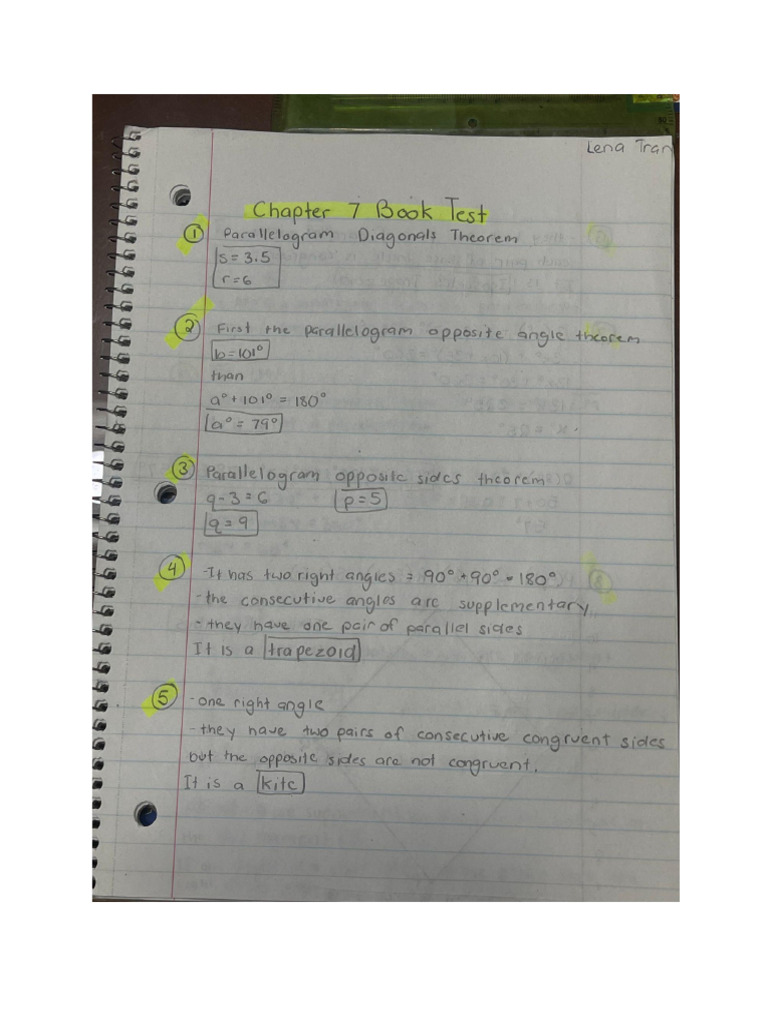 Lena Tran
Chapter 7 Book Test
① Parallelogram Diagonals Theorem
s = 3.5
r = 6
② First the parallelogram opposite angle theorem
b = 101°
than
a° + 101° = 180°
a° = 79°
③ Parallelogram opposite sides theorem
q - 3 = 6 p = 5
q = 9
④ - It has two right angles = 90° + 90° = 180°
- the consecutive angles are supplementary
- they have one pair of parallel sides
It is a trapezoid
⑤ - one right angle
- they have two pairs of consecutive congruent sides
but the opposite sides are not congruent.
It is a kite